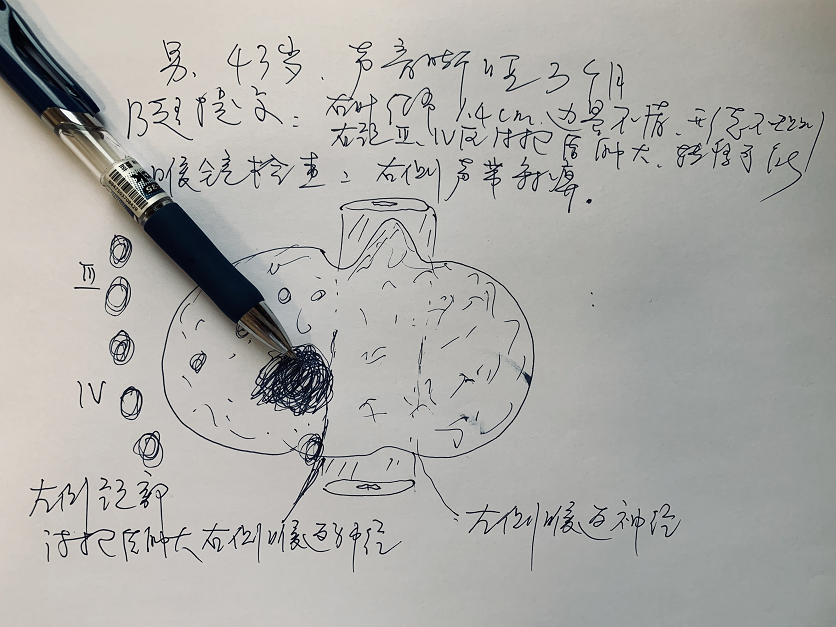 男、43岁、声音嘶哑3个月
B超提示：右叶结节1.4cm、边界不清、形态不规则
右颈Ⅲ、Ⅳ区淋巴结肿大、转移可能
喉镜检查：右侧声带麻痹.
Ⅲ
Ⅳ
右侧颈部
淋巴结肿大
右侧喉返神经
左侧喉返神经